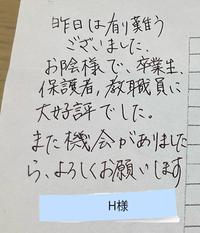 昨日は有り難う
ございました。
お陰様で、卒業生、
保護者，教職員に
大好評でした。
また機会がありました
ら、よろしくお願いします
H様